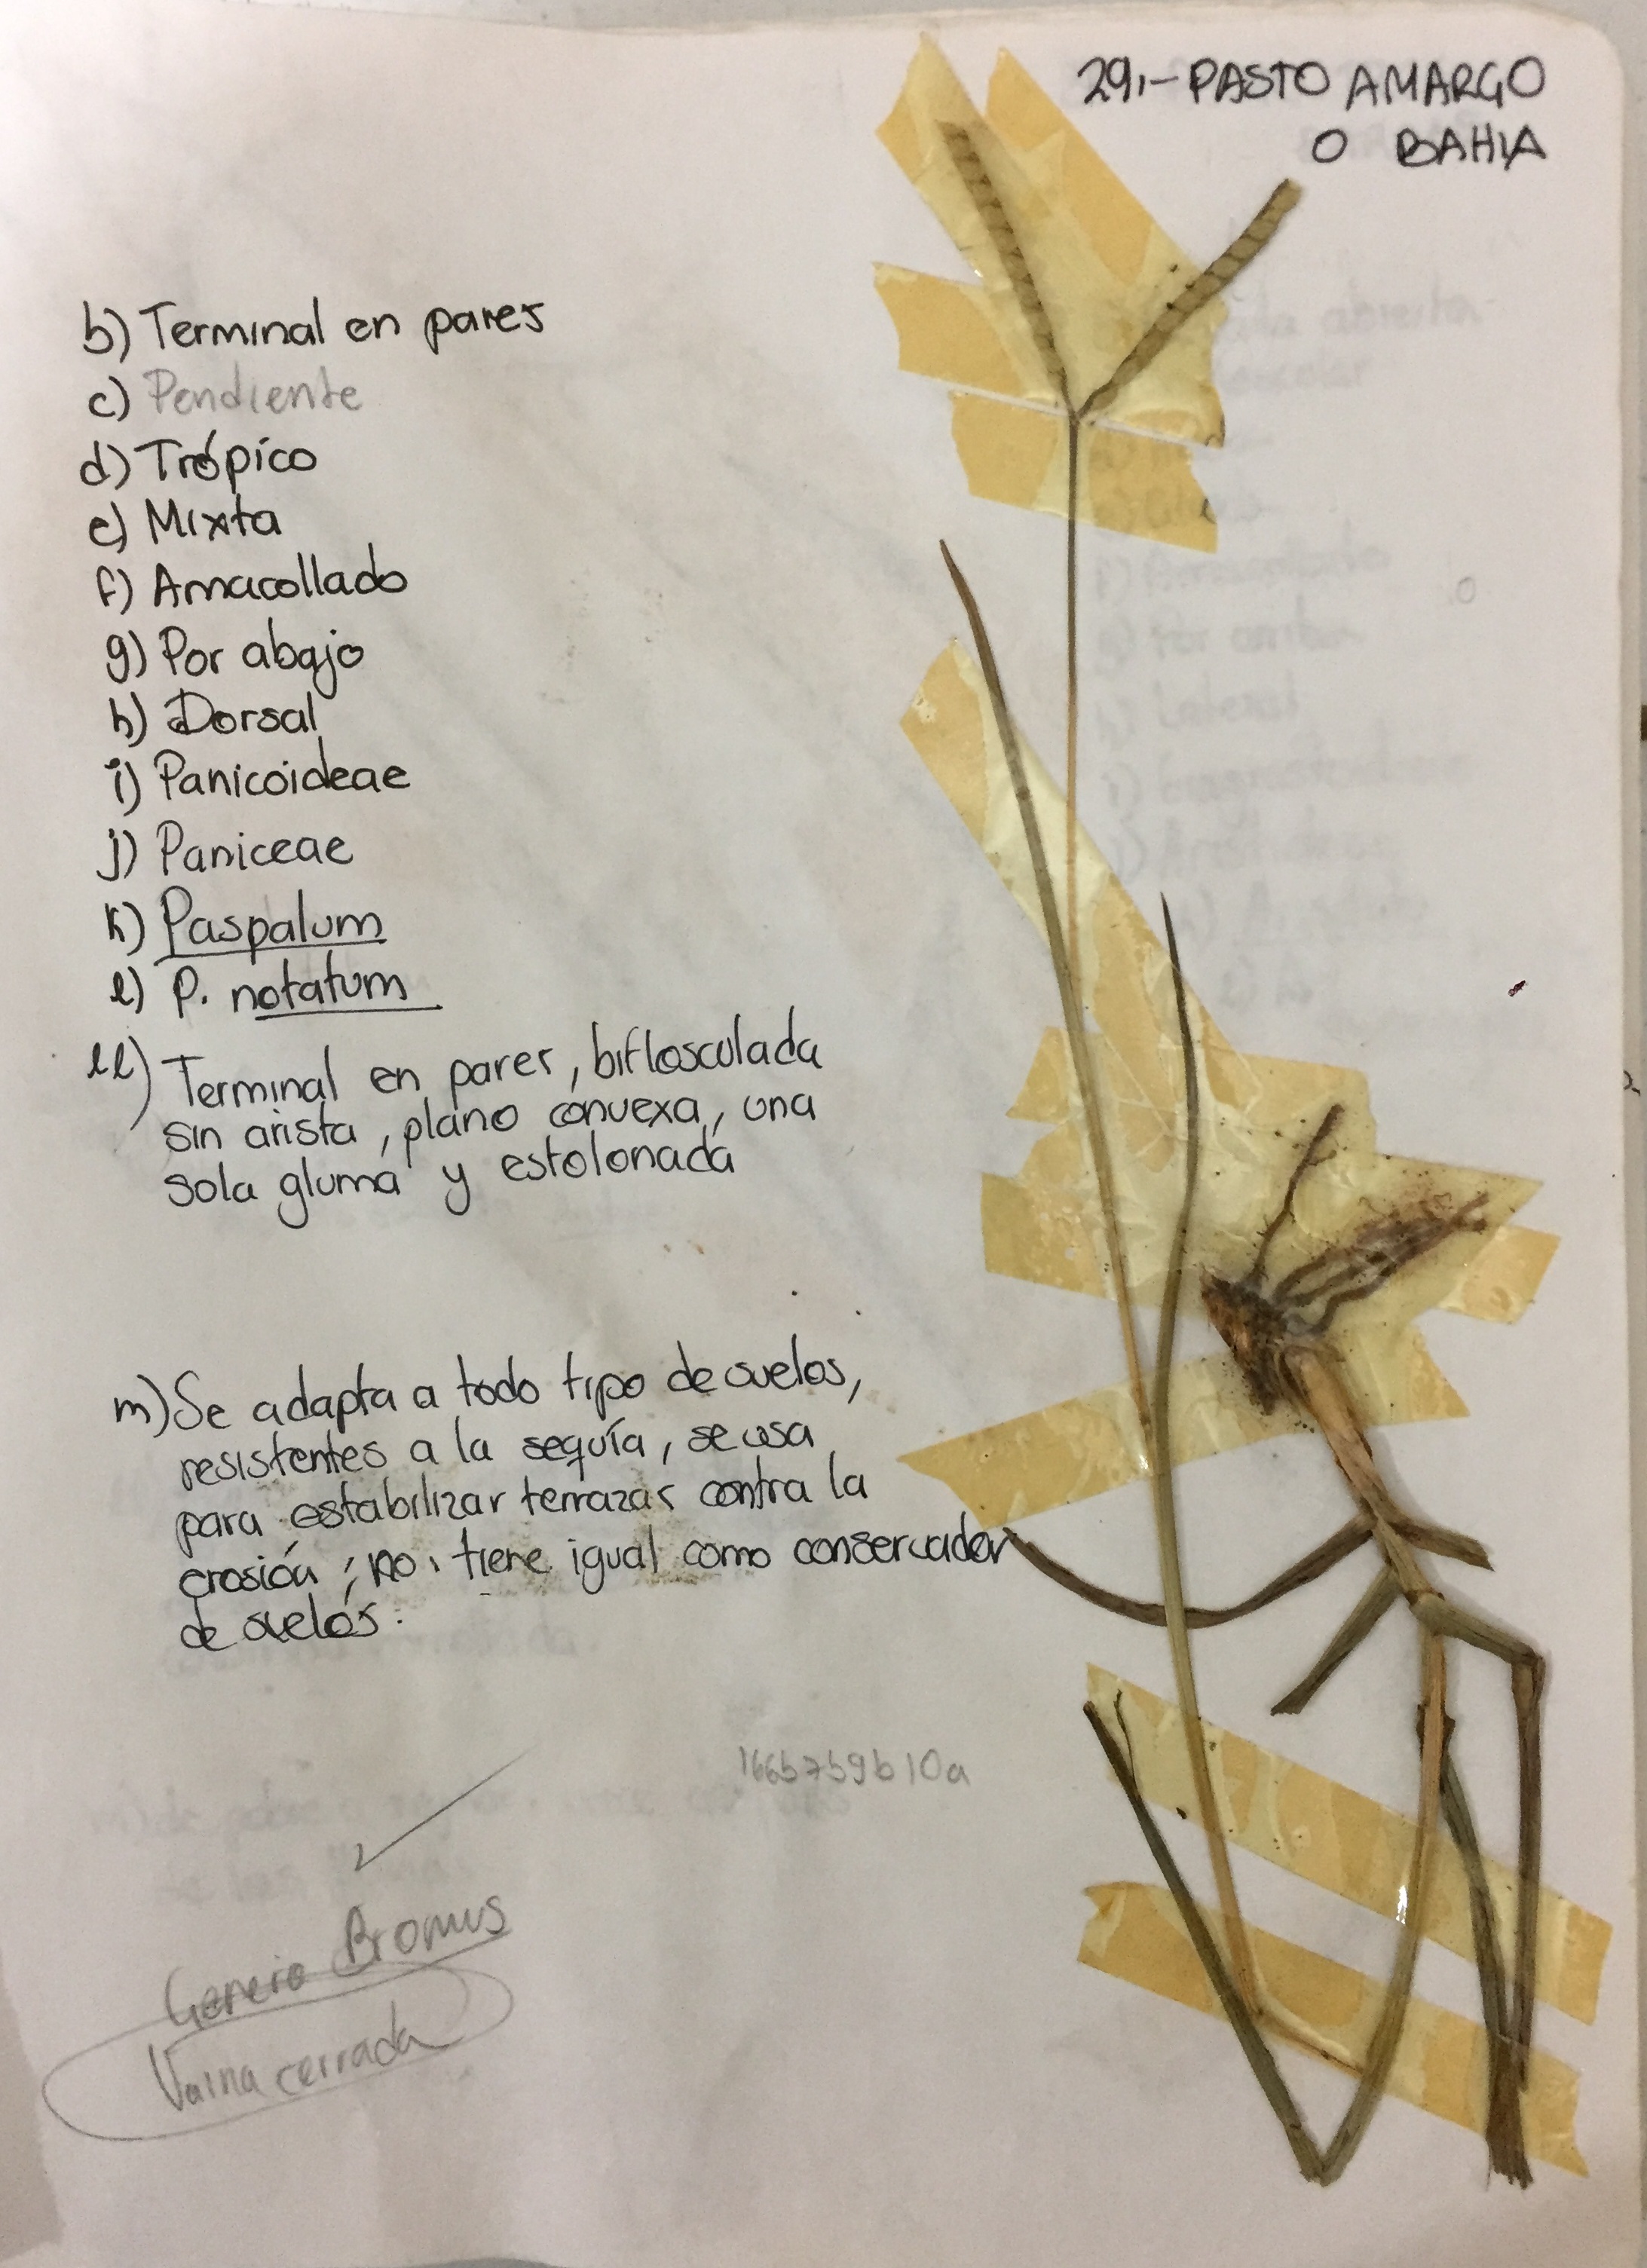 29.- PASTO AMARGO
O BAHIA
b) Terminal en pares
c) Pendiente
d) Trópico
e) Mixta
f) Amacollado
g) Por abajo
h) Dorsal
i) Panicoideae
j) Paniceae
k) Paspalum
l) P. notatum
ll) Terminal en pares, biflosculada
sin arista, plano convexa, una
sola gluma y estolonada
m) Se adapta a todo tipo de suelos,
resistentes a la sequía, se usa
para estabilizar terrazas contra la
erosión; no tiene igual como conservador
de suelos.
1665759b10a
Genero Bromus
Vaina cerrada